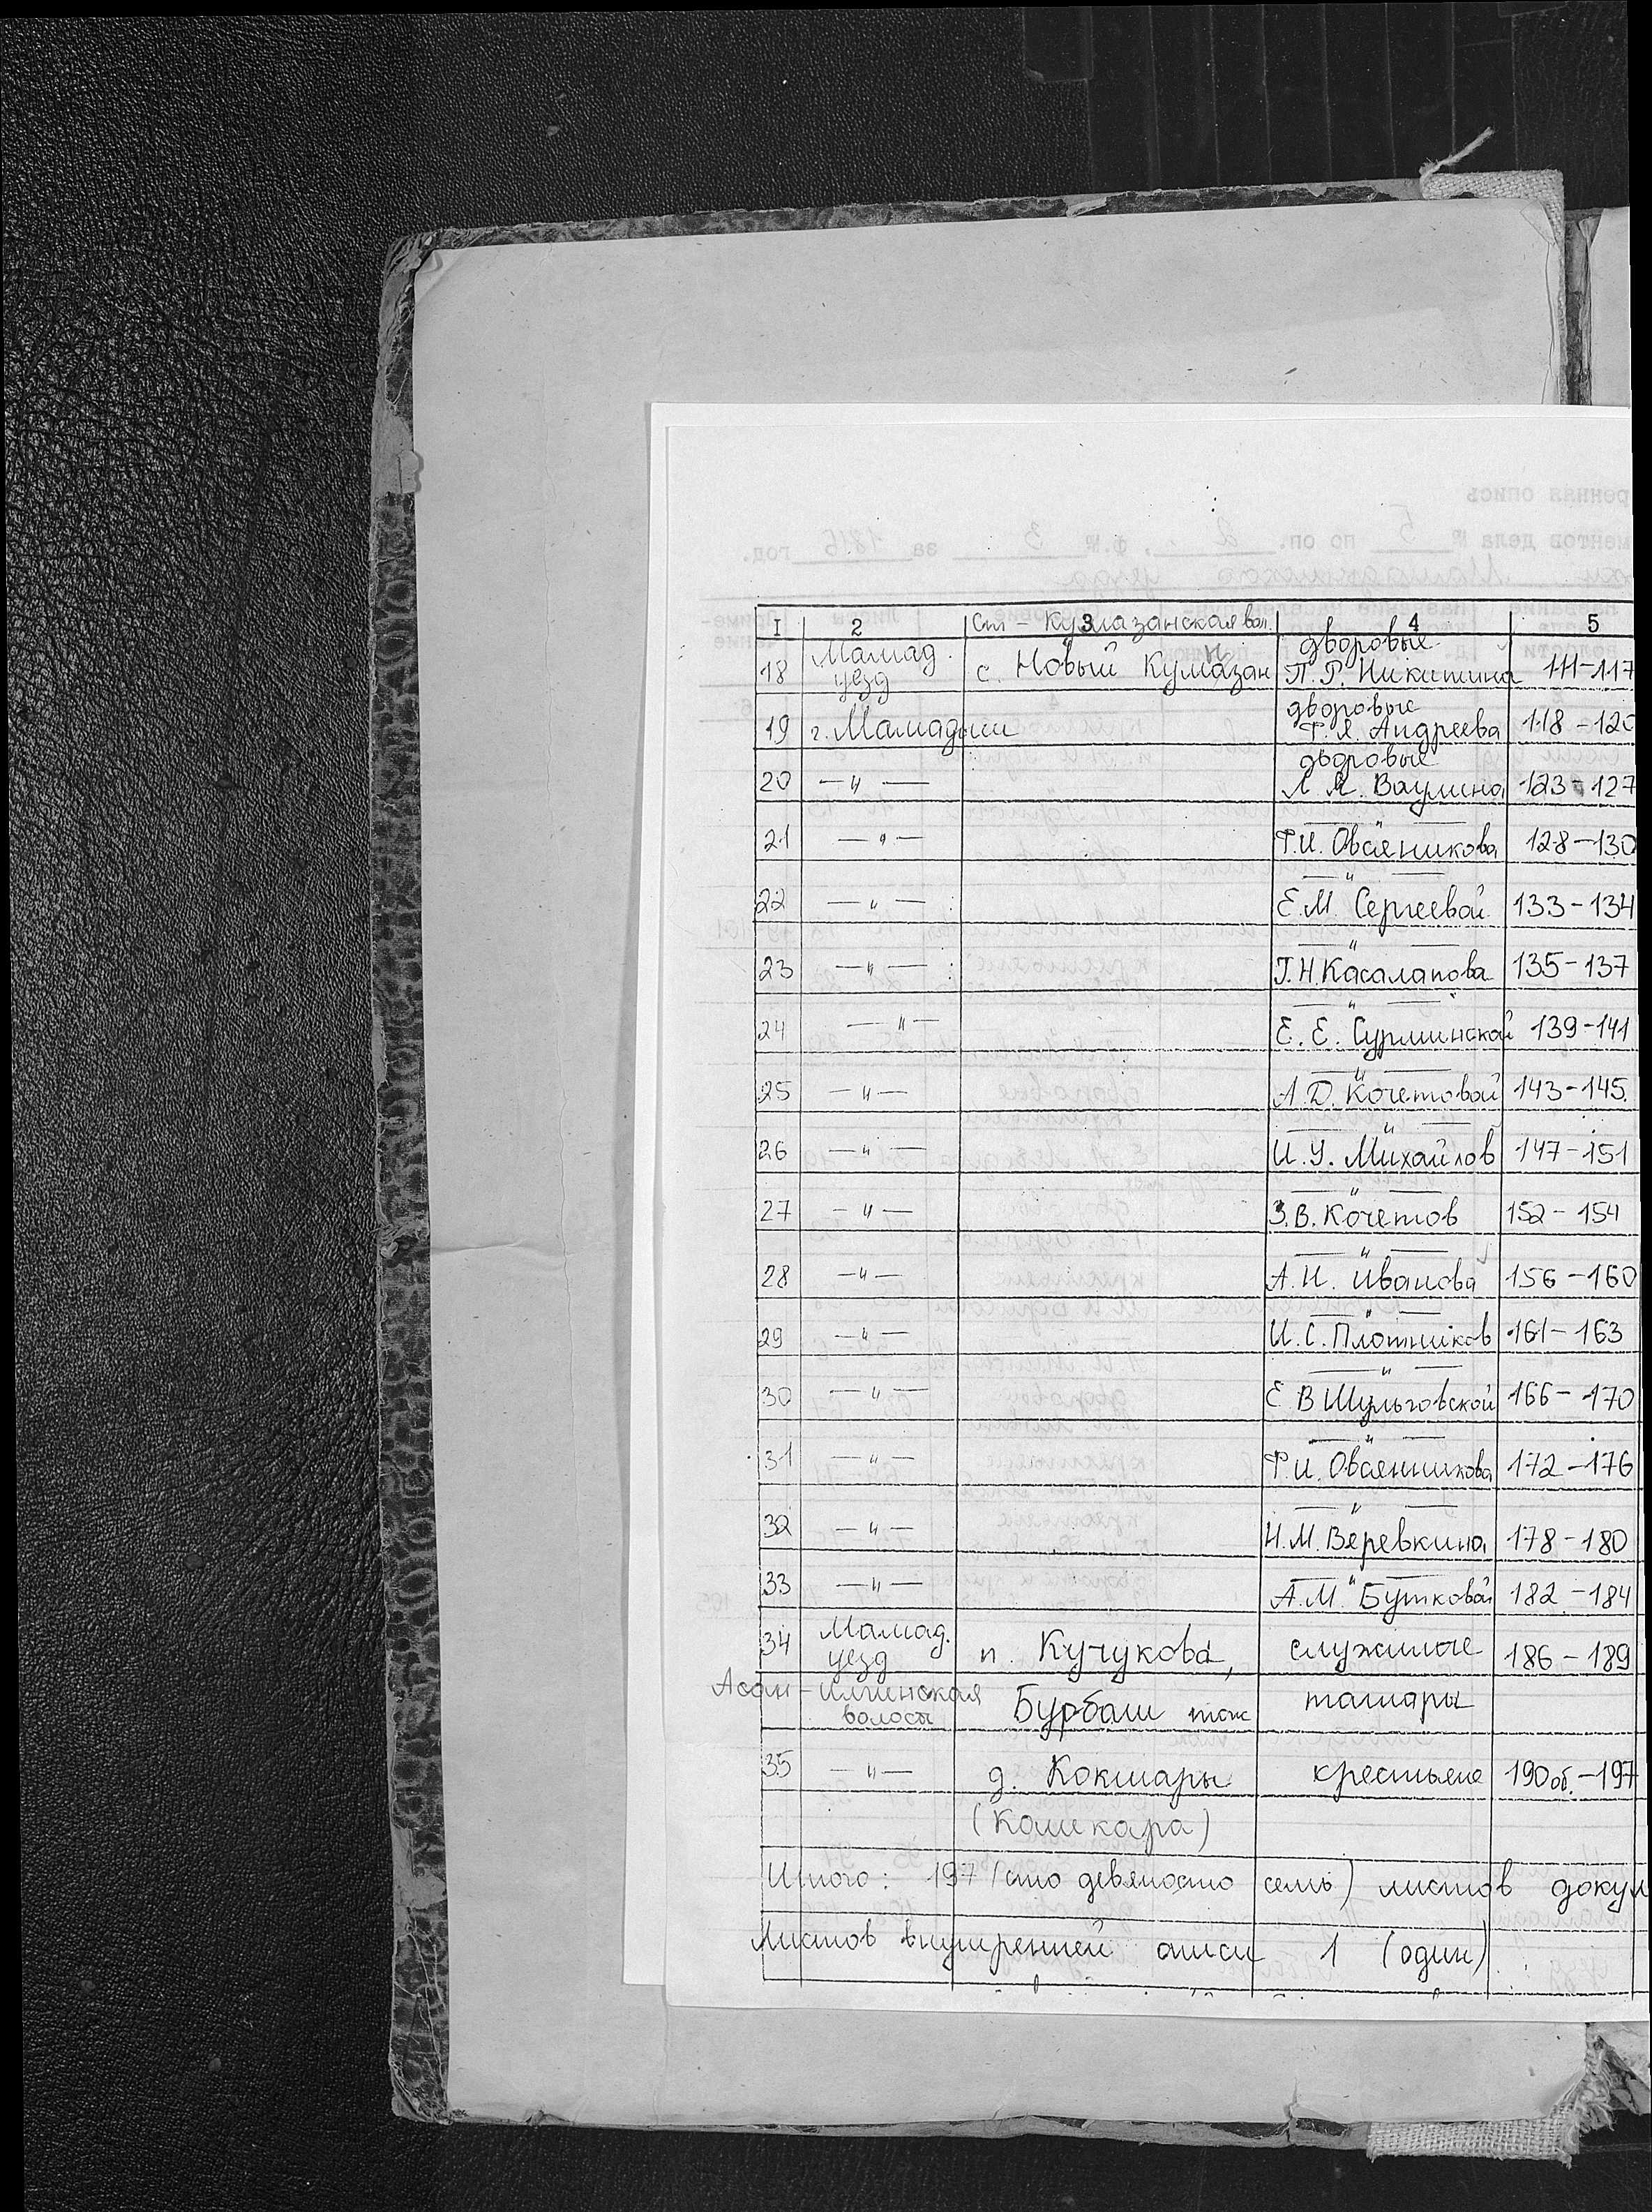 I 2 3 4 5
Ст-Кумазанская вол.
18 Мамад. уезд с. Новый Кумазан дворовые П.Г. Никитина 111-117
19 г. Мамадыш дворовые Т.Я. Андреева 118-120
20 —"— дворовые 123-127
21 —"— —"— Ф.И. Овсяникова 128-130
22 —"— —"— Е.М. Сергеевой 133-134
23 —"— —"— Г.Н. Касалапова 135-137
24 —"— —"— Е.Е. Сурминской 139-141
25 —"— —"— А.Д. Кочетовой 143-145
26 —"— —"— И.У. Михайлов 147-151
27 —"— —"— З.В. Кочетов 152-154
28 —"— —"— А.И. Иванова 156-160
29 —"— —"— И.С. Плотников 161-163
30 —"— —"— Е В Шульговской 166-170
31 —"— —"— Ф.И. Овсянникова 172-176
32 —"— —"— Н.М. Веревкина 178-180
33 —"— —"— А.М. Бутковой 182-184
34 Мамад. уезд п. Кучукова, служилые 186-189
Асан-Илгинская волость Бурбаш тож татары
35 —"— д. Кокшары крестьяне 190об.-197
(Кашкара)
Итого: 197 (сто девяносто семь) листов докум
Листов внутренней описи 1 (один)